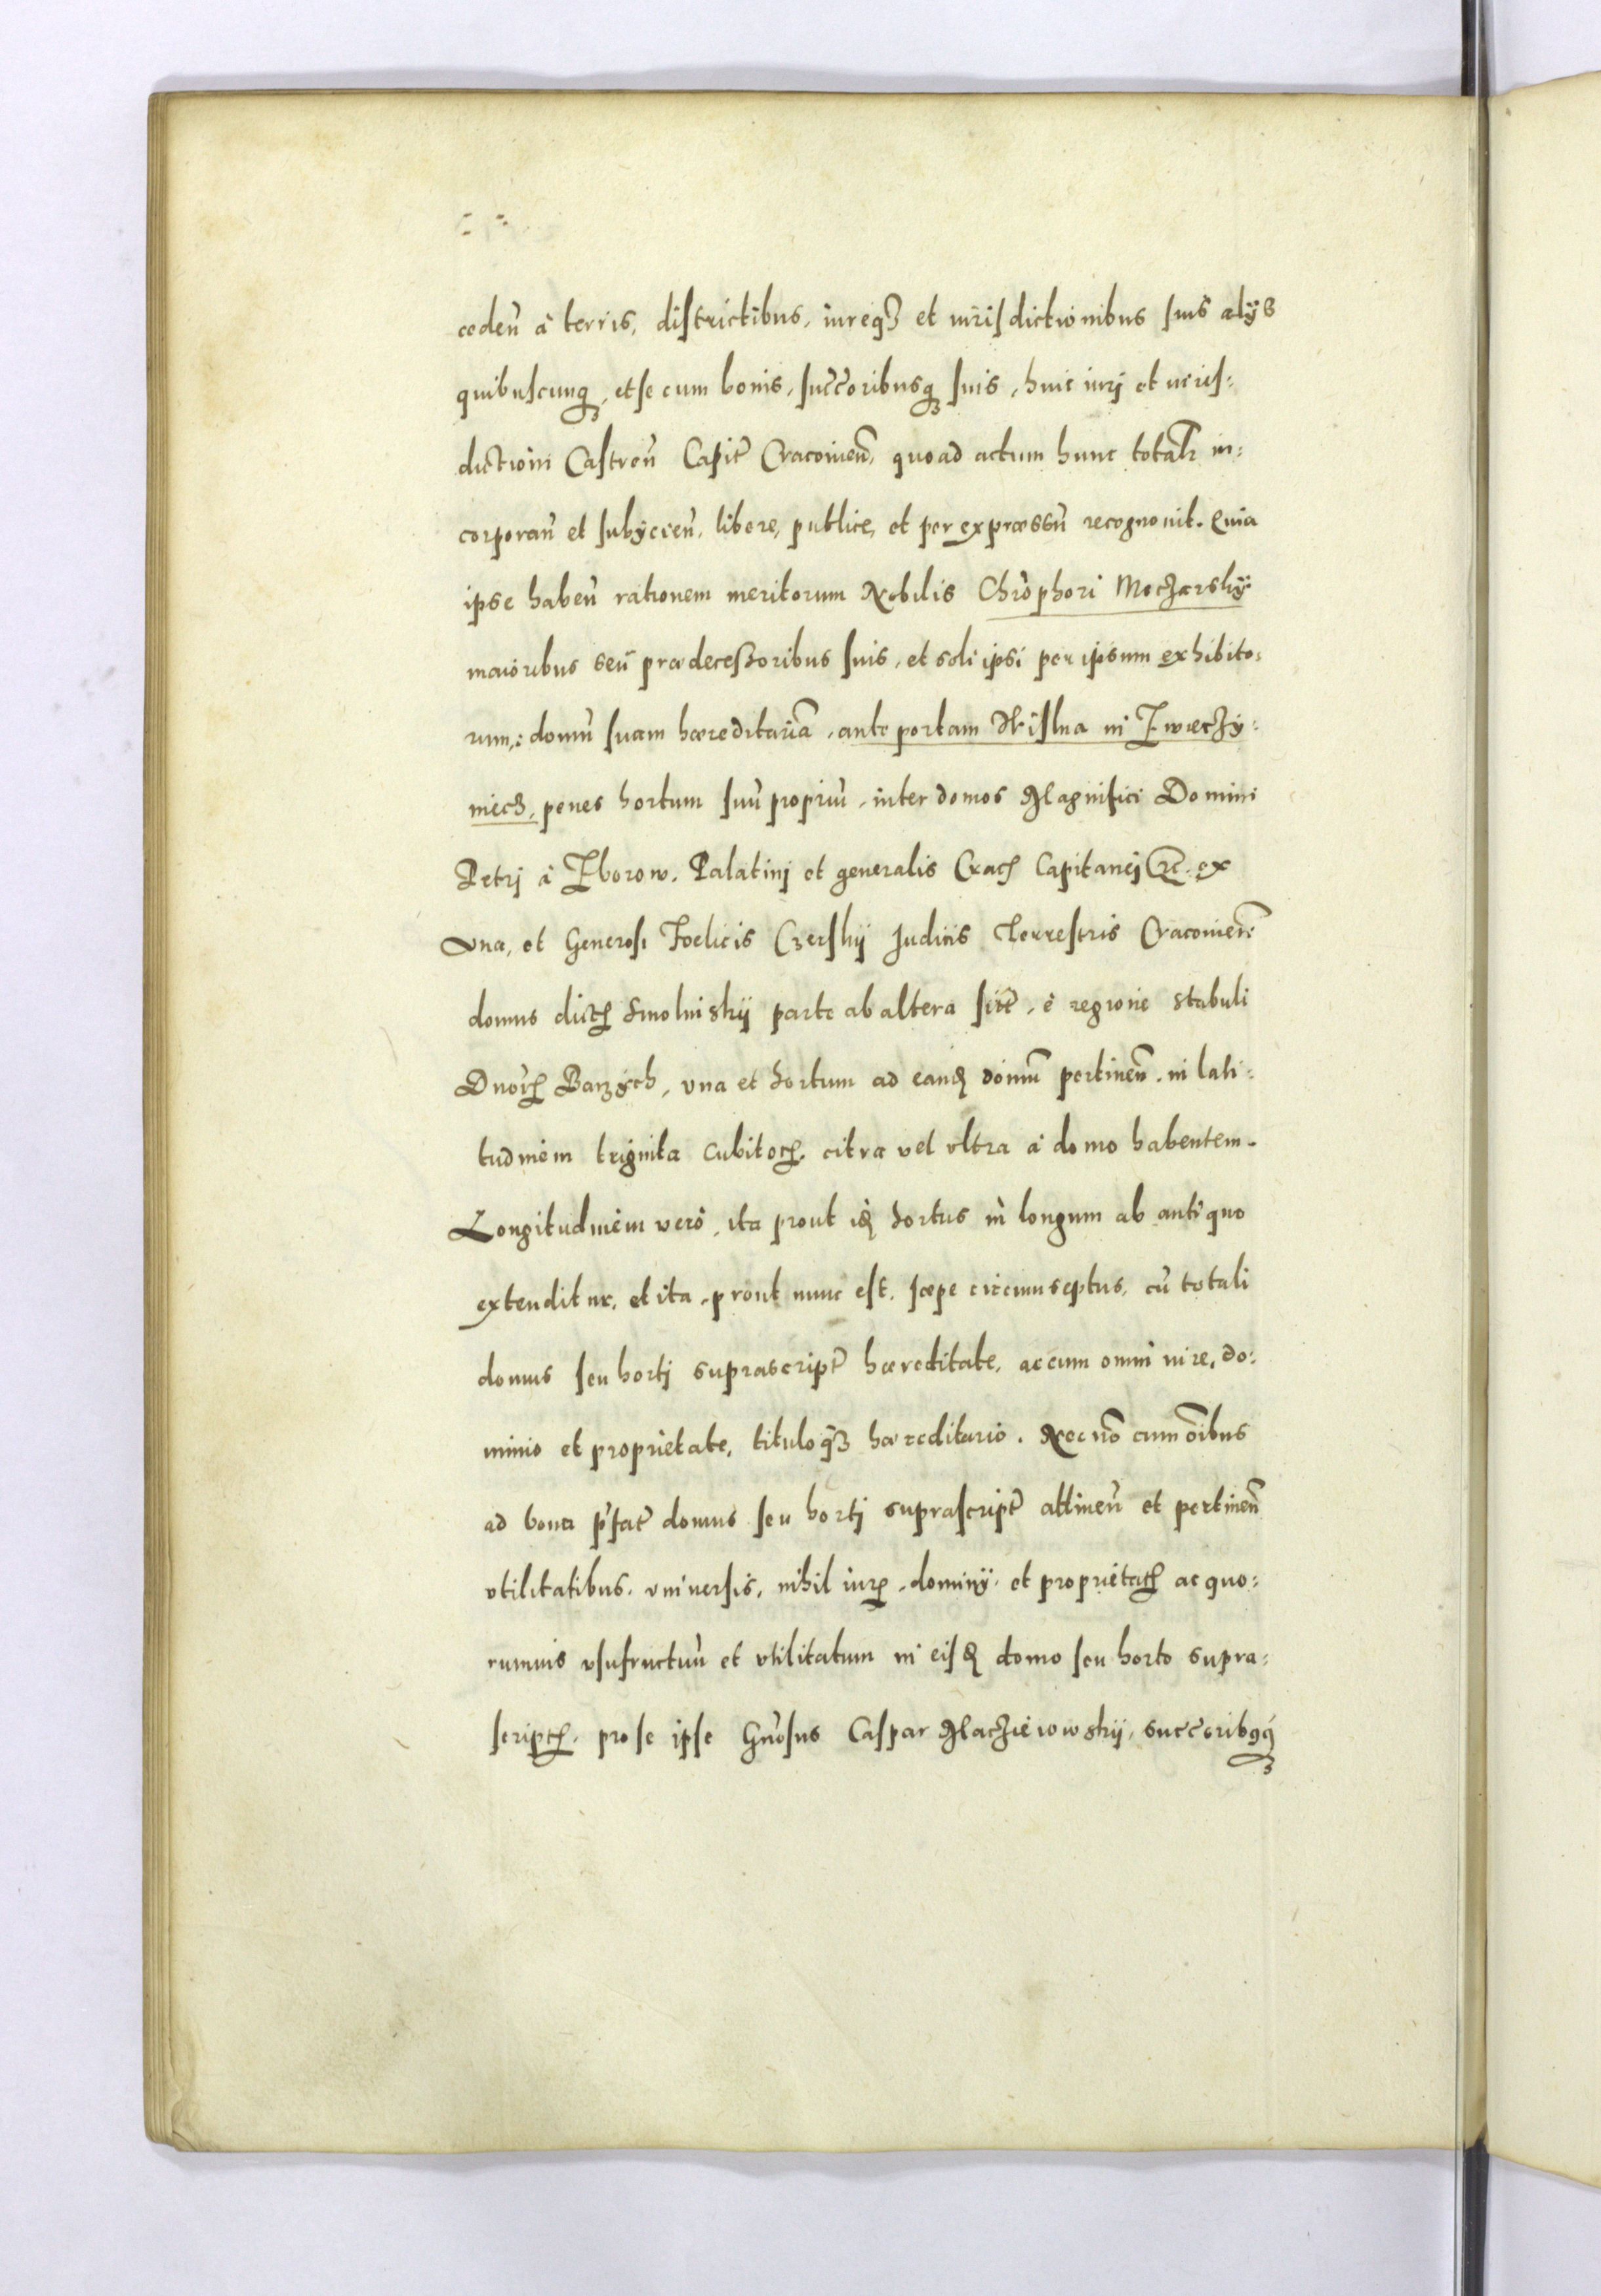 cedeñ à terris, districtibus, iureqꝫ et iurisdictionibus suis alÿs
quibuscunqꝫ, et se cum bonis, succ̃oribusqꝫ suis, huic iurj et iuris:
dictioni Castreñ Capit̃ Cracouieñ, quoad actum hunc total̃r in:
corporañ et subÿcieñ, libere, publice, et per expraessũ recognouit. Quia
ipse habeñ rationem meritorum Nobilis Chr̃ophori Moczarskÿ
maioribus seũ praedecessoribus suis, et soli ipsi per ipsum exhibito:
rum,: domũ suam haereditariã, ante portam Wislna in Zwieczÿ:
niecz, penes hortum suũ propriũ, inter domos Magnifici Domini
Petrj à Zborow. Palatinj et generalis Crac̃ Capitanej &c. ex
vna, et Generosi Foelicis Czerskÿ Judicis Terrestris Cracouieñ
domus dictꝭ Smolniskÿ parte ab altera sit̃, è regione stabuli
Dnor̃ꝝ Barzÿch, vna et hortum ad eandꝫ domũ pertineñ, in lati:
tudinem triginta cubitoꝝ. citra vel vltra à domo habentem.
Longitudinem verò, ita prout idꝫ hortus in longum ab antiquo
extenditur, et ita, prout nunc est, saepe circumseptus, cũ totali
domus seu hortj suprascript̃ haereditate, ac cum omni iure, do:
minio et proprietate, tituloqꝫ haereditario. Nec nõ cum oĩbus
ad bona p̃fat̃ domus seu hortj suprascript̃ attineñ et pertineñ
vtilitatibus, vniuersis, nihil iurꝭ, dominÿ, et proprietatꝭ ac quo:
rumuis vsufructuũ et vtilitatum in eisdꝫ domo seu horto supra:
scriptꝭ, pro se ipse Gñosus Caspar Macziẻiowskÿ, succ̃oribꝰqꝫ